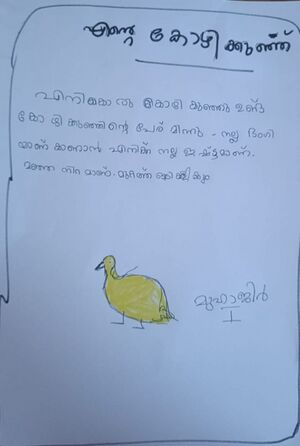 എന്റെ കോഴിക്കുഞ്ഞ്
എനിക്കൊരു കോഴി കുഞ്ഞു ഉണ്ടു
കോഴി കുഞ്ഞിന്റെ പേര് മിന്നു - നല്ല ഭംഗി
യാണ് കാണാൻ എനിക്ക് നല്ല ഇഷ്ട്ടമാണ്.
മഞ്ഞ നിറമാണ്. മുറ്റത്ത്
മുഹാജിർ
I